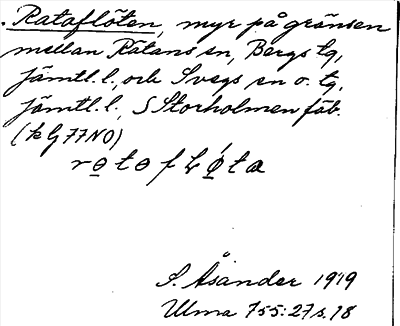 Rataflöten, myr på gränsen
mellan Rätans sn, Bergs tg,
Jämtl. l., och Svegs sn o. tg,
Jämtl. l., S Storholmen fäb.
(kG 77 NO)
S. Åsander 1919
Ulma 755:27 s. 18